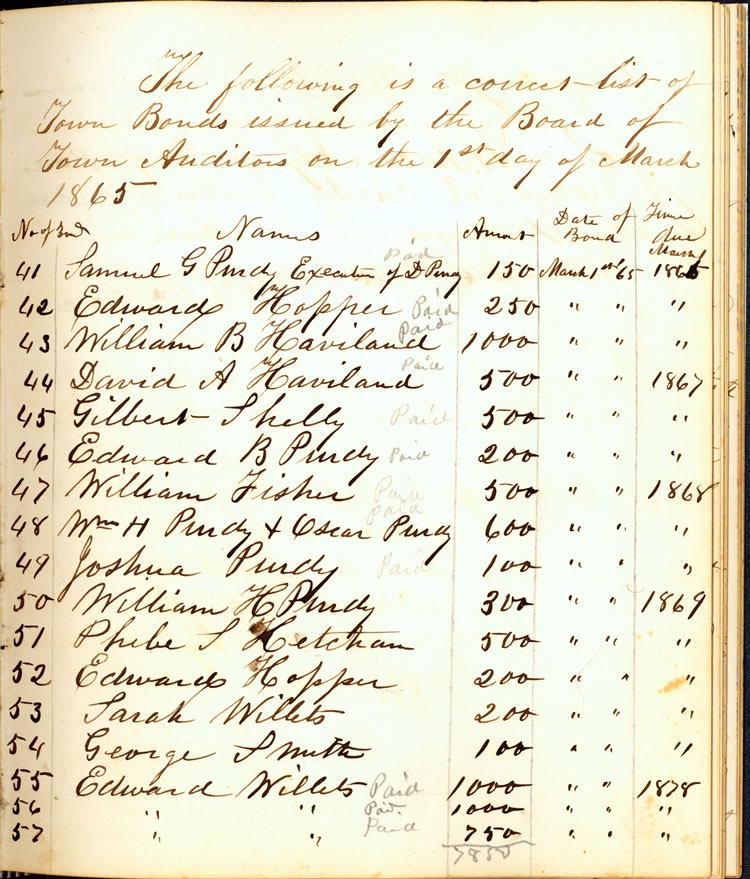 The following is a correct list of
Town Bonds issued by the Board of
Town Auditors on the 1st day of March
1865
No of Bond Names Amount Date of Bond Time due March
41 Samuel G Purdy Executor of D Purdy Paid 150 March 1st '65 1865
42 Edward Hopper Paid 250 " " "
43 William B Haviland Paid 1000 " " "
44 David A Haviland Paid 500 " " 1867
45 Gilbert Shelly Paid 500 " " "
46 Edward B Purdy Paid 200 " " "
47 William Fisher Paid 500 " " 1868
48 Wm H Purdy & Oscar Purdy Paid 600 " " "
49 Joshua Purdy Paid 100 " " "
50 William H Purdy 300 " " 1869
51 Phebe S Ketcham 500 " " "
52 Edward Hopper 200 " " "
53 Sarah Willets 200 " " "
54 George Smith 100 " " "
55 Edward Willets Paid 1000 " " 1878
56 " " Paid. 1000 " " "
57 " " Paid 750 " " "
7850